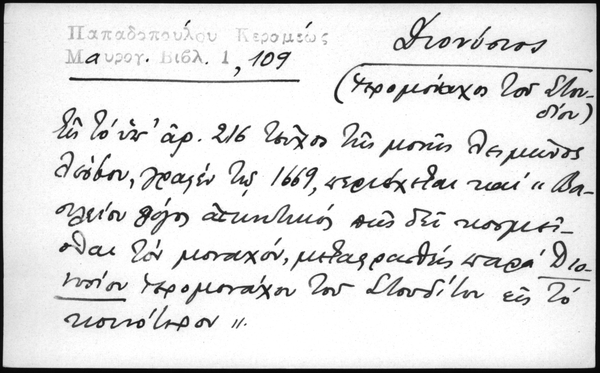 Παπαδοπούλου Κεραμέως
Μαυρογ. Βιβλ. 1, 109
Διονύσιος
(Ἱερομόναχος τοῦ Στου-
δίου)
Εἰς τὸ ὑπ' ἀρ. 216 τεῦχος τῆς μονῆς Λειμῶνος
Λέσβου, γραφὲν τῷ 1669, περιέχεται καὶ "Βα-
σιλείου λόγος ἀσκητικός πῶς δεῖ κοσμεῖ-
σθαι τὸν μοναχόν, μεταφρασθεὶς παρὰ Διο-
νυσίου Ἱερομονάχου τοῦ Στουδίτου εἰς τὸ
κοινότερον".